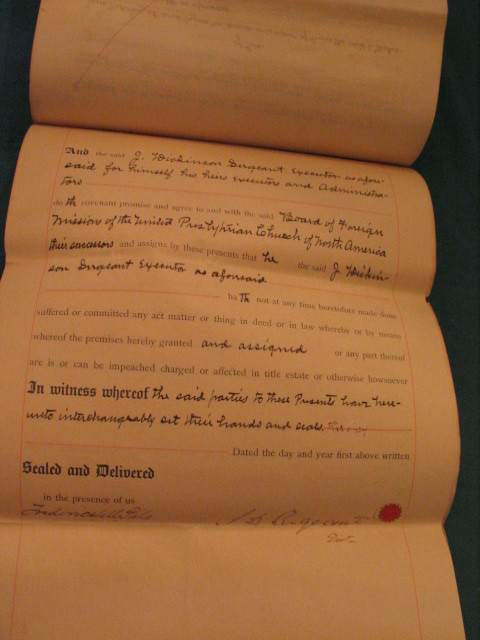 And the said J. Dickinson Sergeant Executor as afore-
said for himself his heirs executors and Administra-
tors
doth covenant promise and agree to and with the said Board of Foreign
Mission of the United Presbyterian Church of North America
their successors and assigns by these presents that he the said J Dickin-
son Sergeant Executor as aforesaid
hath not at any time heretofore made done
suffered or committed any act matter or thing in deed or in law whereby or by means
whereof the premises hereby granted and assigned or any part thereof
are is or can be impeached charged or affected in title estate or otherwise howsoever
In witness whereof the said parties to these Presents have here-
unto interchangeably set their hands and seals.
Dated the day and year first above written
Sealed and Delivered
in the presence of us